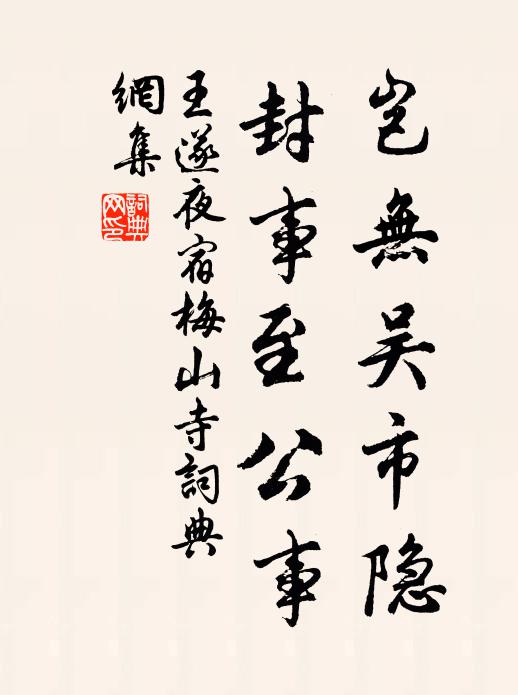 岂無吴市隐
封事至公事
王遂夜宿梅山寺詞典
網集
詞典网印